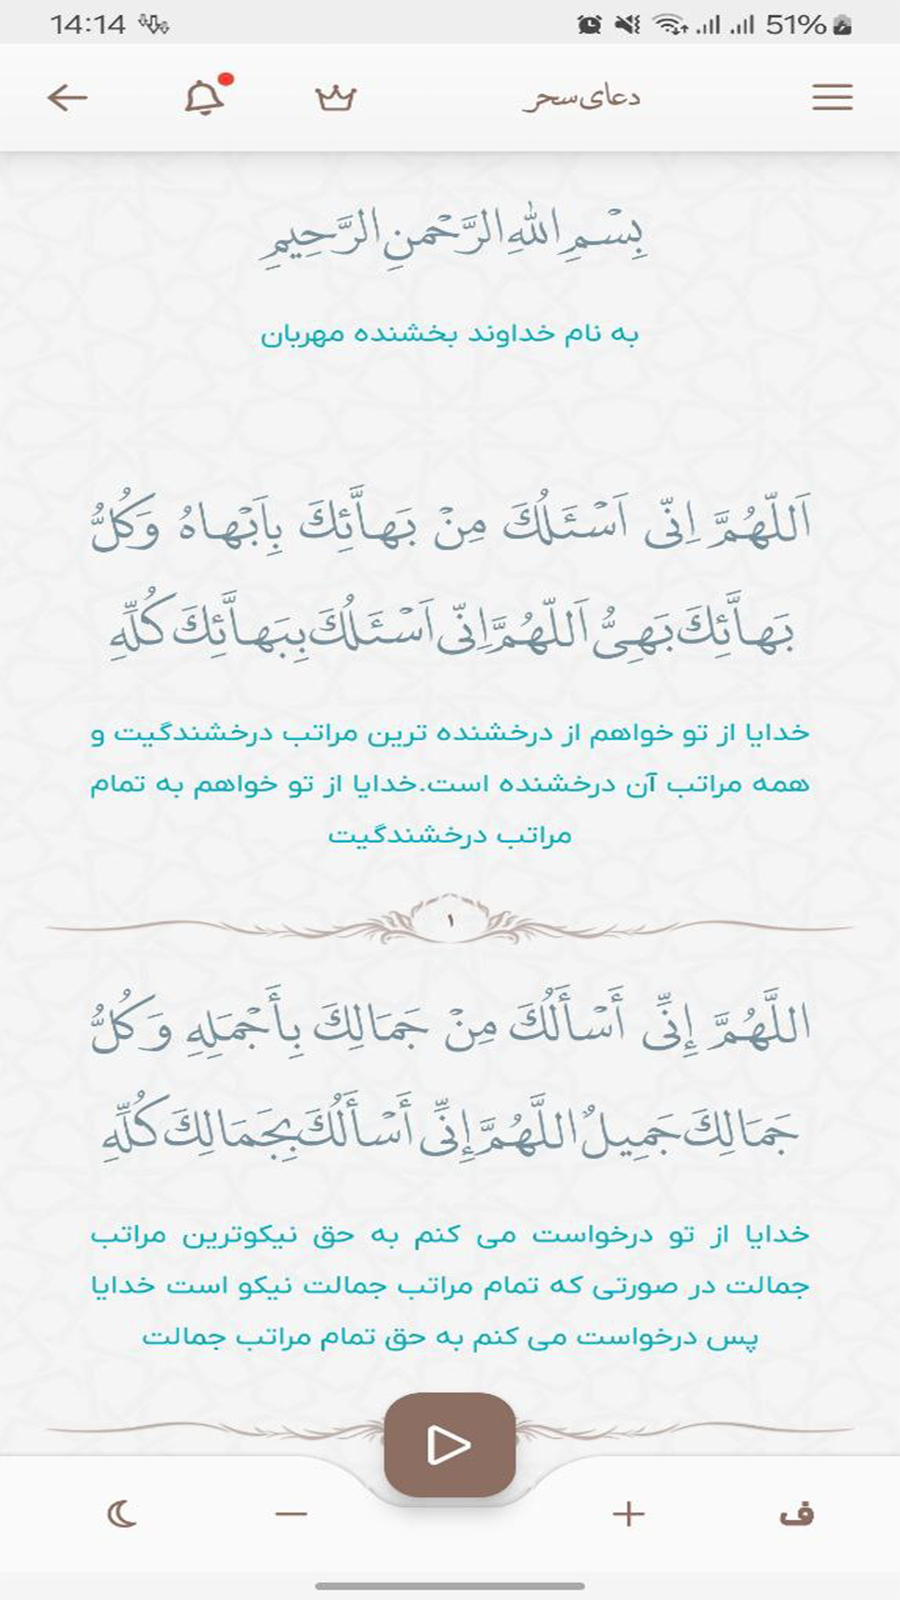 14:14
51%
دعای سحر
بِسْمِ اللهِ الرَّحْمنِ الرَّحِيمِ
به نام خداوند بخشنده مهربان
اَللّهُمَّ اِنّی اَسْئَلُكَ مِنْ بَهاَّئِكَ بِاَبْهاهُ وَكُلُّ
بَهاَّئِكَ بَهِیُّ اَللّهُمَّ اِنّی اَسْئَلُكَ بِبَهاَّئِكَ كُلِّهِ
خدایا از تو خواهم از درخشنده ترین مراتب درخشندگیت و
همه مراتب آن درخشنده است.خدایا از تو خواهم به تمام
مراتب درخشندگیت
۱
اللَّهُمَّ إِنِّی أَسْأَلُكَ مِنْ جَمَالِكَ بِأَجْمَلِهِ وَ كُلُّ
جَمَالِكَ جَمِیلٌ اللَّهُمَّ إِنِّی أَسْأَلُكَ بِجَمَالِكَ كُلِّهِ
خدایا از تو درخواست می کنم به حق نیکوترین مراتب
جمالت در صورتی که تمام مراتب جمالت نیکو است خدایا
پس درخواست می کنم به حق تمام مراتب جمالت
ف